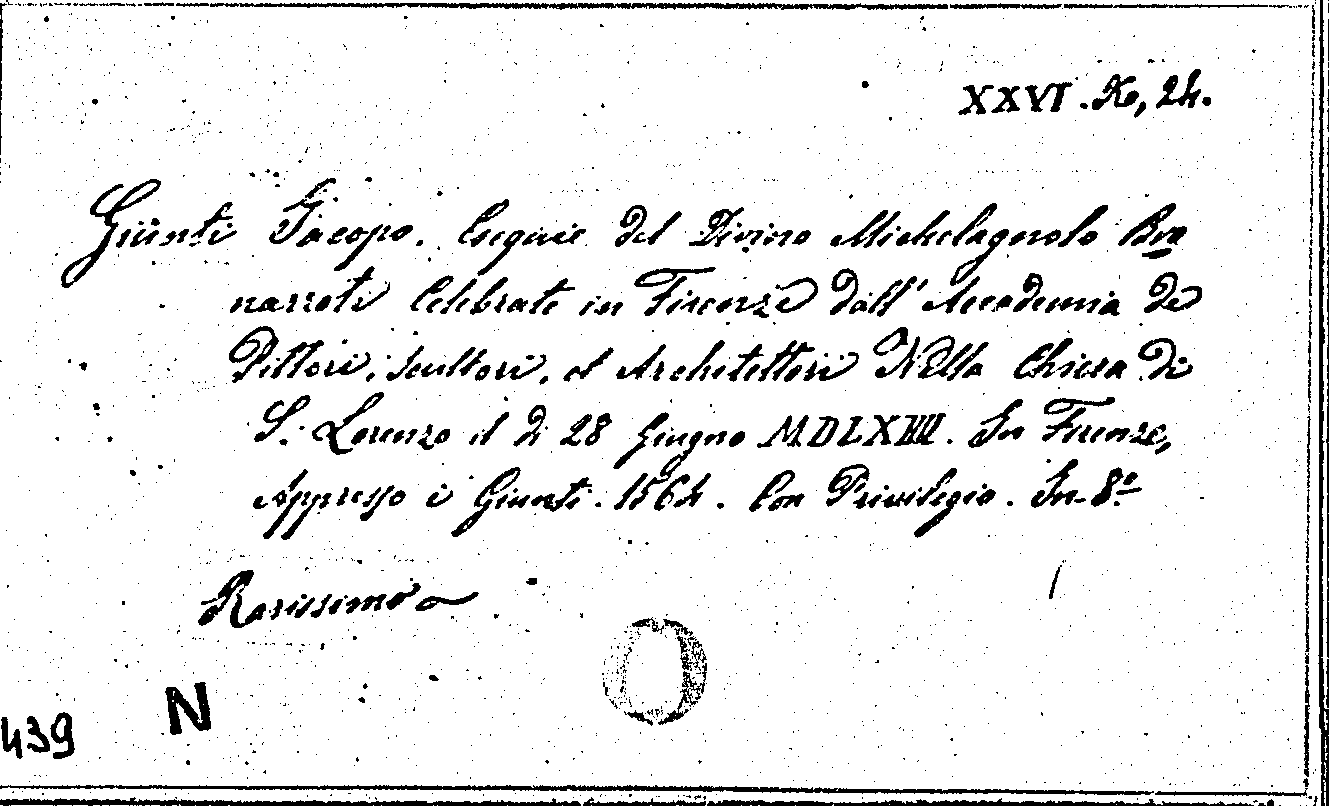 XXVI. Xe, 24.
Giünti Jacopo. Esequie del Divino Michelagnolo Bua
narroti Celebrate in Firenze dall' Accademia de
Pittori, Scultori, et Architettori Nella Chiesa di
S. Lorenzo il di 28 Giugno MDLXIIII. In Firenze,
Appresso i Giunti. 1564. Con Privilegio. In 8º
Rarissimo
N
439